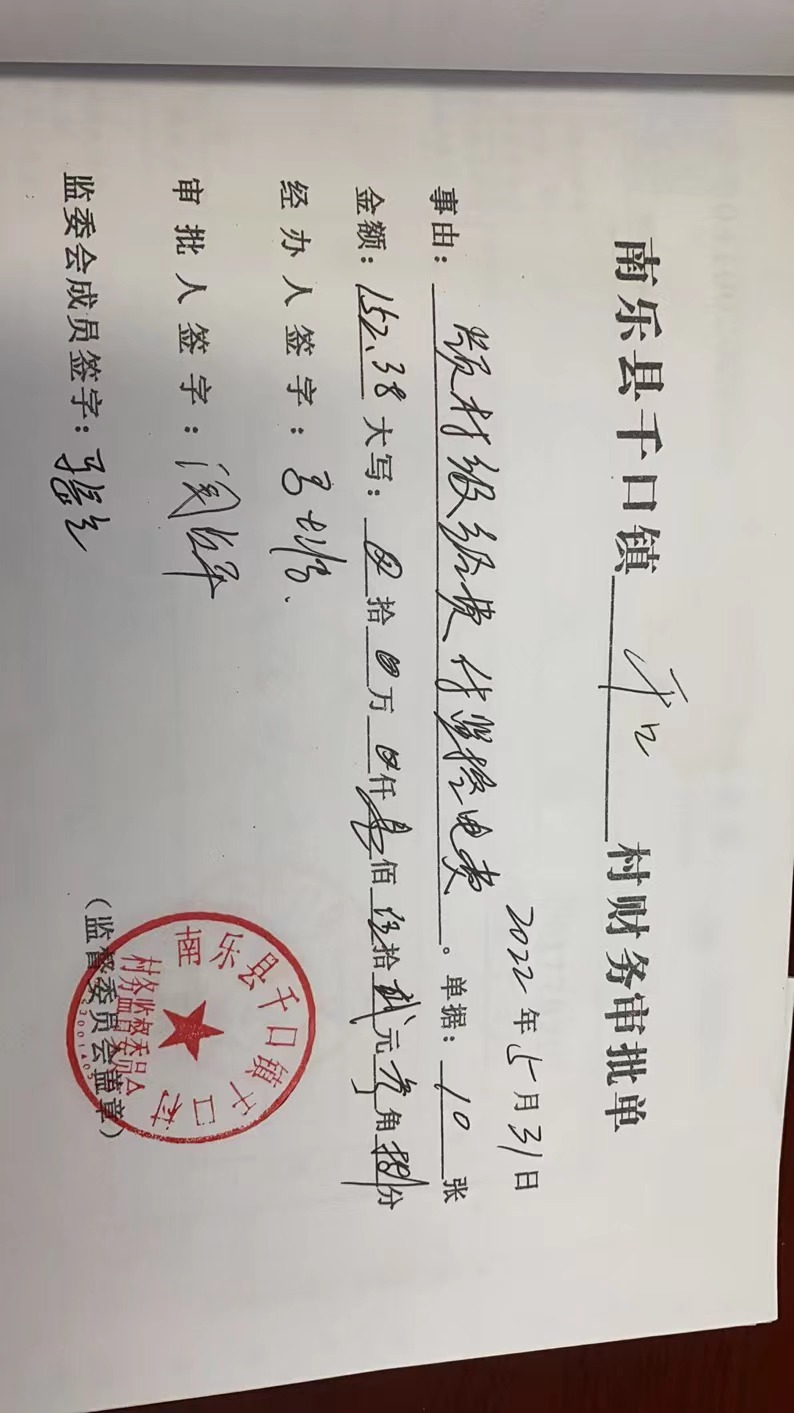 南乐县千口镇 千口 村财务审批单
2022年5月31日
事由：颁村级经费付监控电费。单据：10张
金额：152.38大写：⊗拾⊗万⊗仟壹佰伍拾贰元叁角捌分
经办人签字：
审批人签字：
监委会成员签字：
（监督委员会盖章）
南乐县千口镇千口村
村务监督委员会